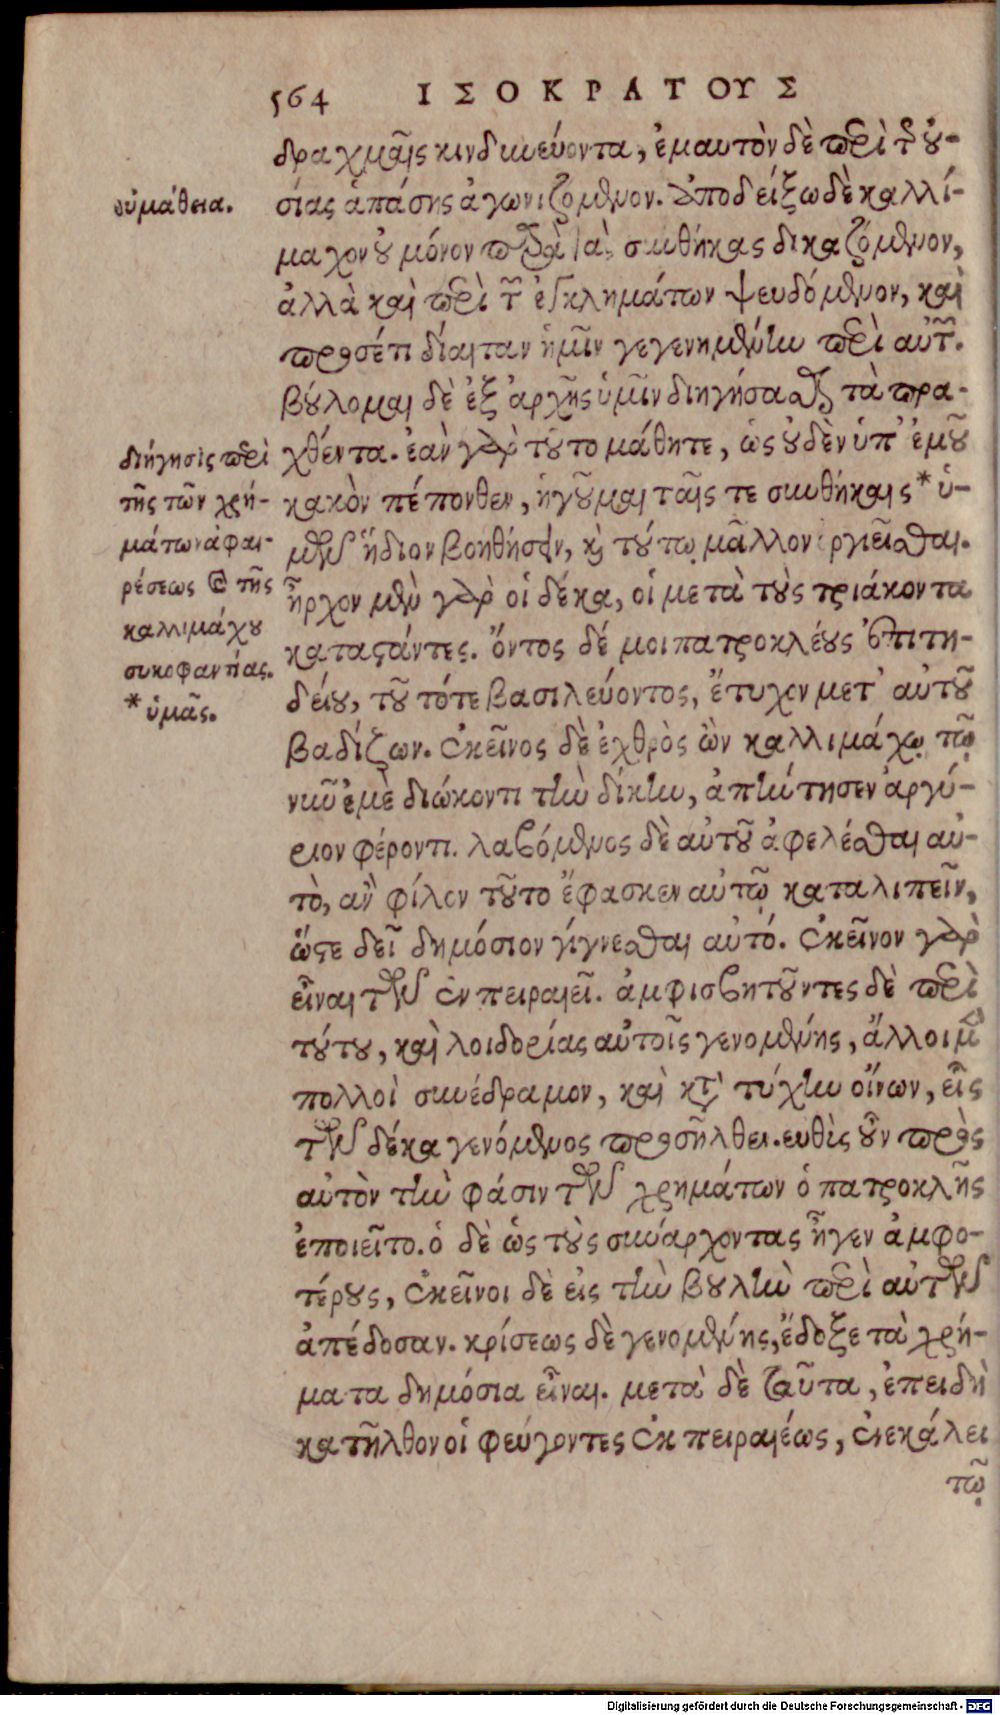 564 ΙΣΟΚΡΑΤΟΥΣ
δραχμαῖς κινδυνεύοντα, ἐμαυτὸν δὲ περὶ τῆς οὐ-
εὐμάθεια.
σίας ἁπάσης ἀγωνιζόμενον. ἀποδείξω δὲ καλλί-
μαχον οὐ μόνον παρὰ τὰς συνθήκας δικαζόμενον,
ἀλλὰ καὶ περὶ τῶν ἐγκλημάτων ψευδόμενον, καὶ
προσέτι δίαιταν ἡμῖν γεγενημένην περὶ αὐτῶν.
βούλομαι δὲ ἐξ ἀρχῆς ὑμῖν διηγήσασθαι τὰ πρα-
χθέντα. ἐὰν γὰρ τοῦτο μάθητε, ὡς οὐδὲν ὑπ' ἐμοῦ
κακὸν πέπονθεν, ἡγοῦμαι ταῖς τε συνθήκαις * ὑ-
μῶν ἥδιον βοηθήσειν, καὶ τούτῳ μᾶλλον ὀργιεῖσθαι.
ἦρχον μὲν γὰρ οἱ δέκα, οἱ μετὰ τοὺς τριάκοντα
καταστάντες. ὄντος δέ μοι πατροκλέους ἐπιτη-
δείου, τοῦ τότε βασιλεύοντος, ἔτυχον μετ' αὐτοῦ
βαδίζων. ἐκεῖνος δὲ ἐχθρὸς ὢν καλλιμάχῳ τῷ
νῦν ἐμὲ διώκοντι τὴν δίκην, ἀπήντησεν ἀργύ-
ριον φέροντι. λαβόμενος δὲ αὐτοῦ ἀφελέσθαι αὐ-
τὸ, ἂν φίλον τοῦτο ἔφασκεν αὐτῷ καταλιπεῖν,
ὥστε δεῖ δημόσιον γίγνεσθαι αὐτό. ἐκεῖνον γὰρ
εἶναι τῶν ἐν πειραιεῖ. ἀμφισβητοῦντες δὲ περὶ
τούτου, καὶ λοιδορίας αὐτοῖς γενομένης, ἄλλοι μὲν
πολλοὶ συνέδραμον, καὶ κατὰ τύχην οἴνων, εἷς
τῶν δέκα γενόμενος προσῆλθει. εὐθὶς οὖν πρὸς
αὐτὸν τὴν φάσιν τῶν χρημάτων ὁ πατροκλῆς
ἐποιεῖτο. ὁ δὲ ὡς τοὺς συνάρχοντας ἦγεν ἀμφο-
τέρους, ἐκεῖνοι δὲ εἰς τὴν βουλὴν περὶ αὐτῶν
ἀπέδοσαν. κρίσεως δὲ γενομένης, ἔδοξε τὰ χρή-
ματα δημόσια εἶναι. μετὰ δὲ ταῦτα, ἐπειδὴ
κατῆλθον οἱ φεύγοντες ἐκ πειραιέως, ἐνεκάλει
τῷ
διήγησις περὶ
τῆς τῶν χρη-
μάτων ἀφαι-
ρέσεως καὶ τῆς
καλλιμάχου
συκοφαντίας.
* ὑμᾶς.
Digitalisierung gefördert durch die Deutsche Forschungsgemeinschaft - DFG